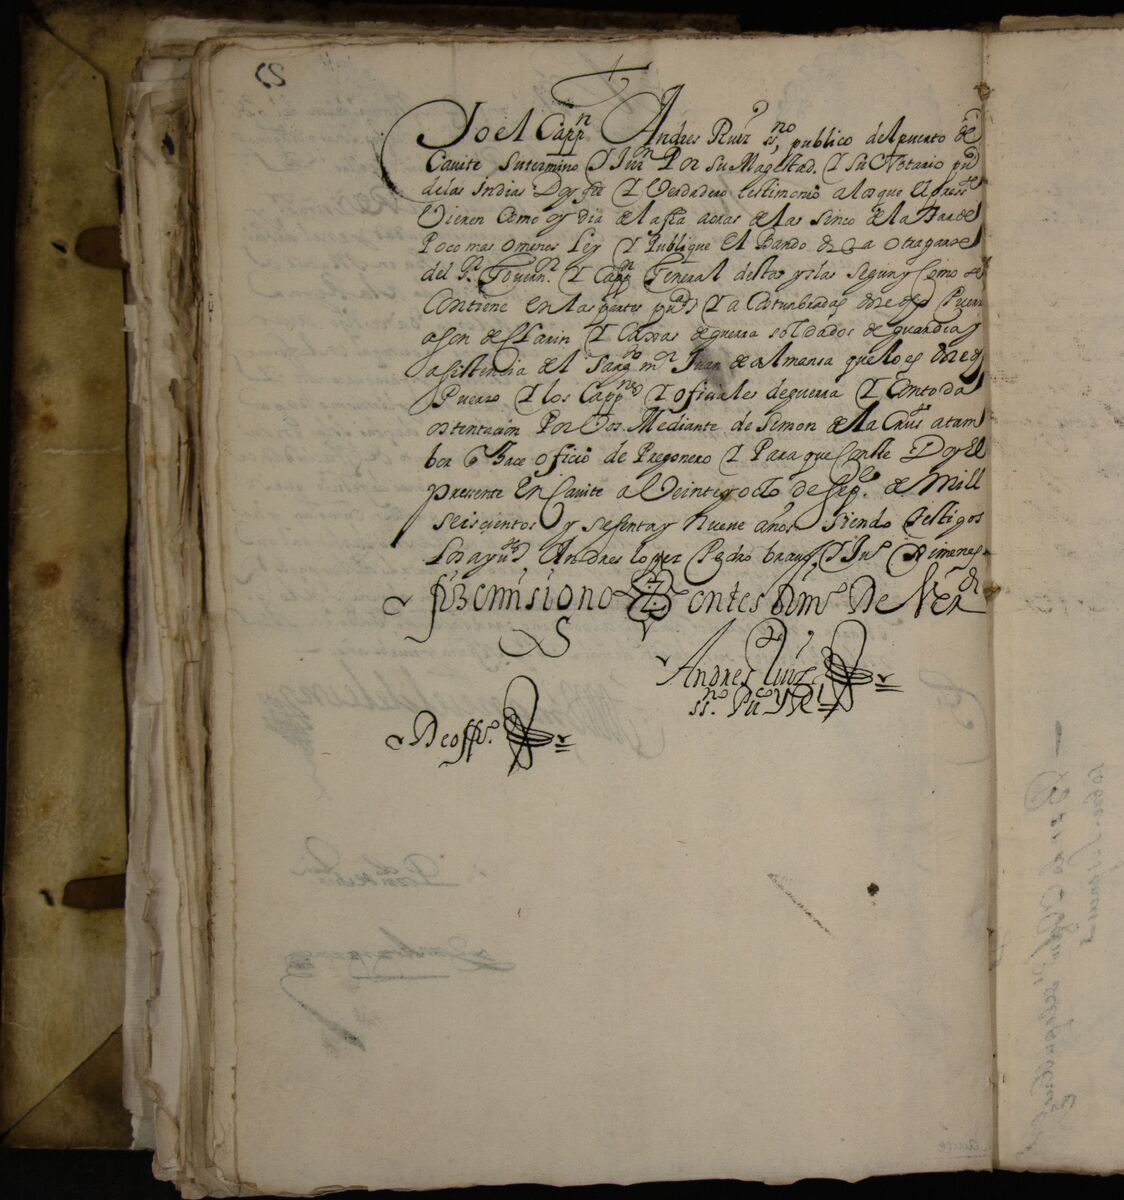 Yo el Capp.n Andres Ruiz ss.no publico del puerto de
Cavite su termino y Jur.n Por su Magestad. y su Notario pu.co
de las Indias Doy fee y Verdadero testimonio a los que el press.te
Vieren Como oy dia de la fha aoras de las sinco de la tarde
Poco mas o menos Ley y Publique El Bando de la otra parte
del S.r Govern.or y Capp.n General destas yslas segun y Como se
Contiene en las partes pu.cas y a Costunbradas deste Puerto
a son de Clarin y Caxas de guerra soldados de guardia y
asistencia del Sarg.to m.or Juan de almansa que lo es deste
Puerto y los Capp.nes y oficiales de guerra y Con toda
ostentacion Por Vos Mediante de Simon de la Crus atam
bor q hace oficio de Pregonero y Para que Conste Doy El
presente En Cavite a Veinte y ocho de Sep.e de Mill
seiscientos y sesenta y nueve años siendo testigos
los ayu.tes Andres lopez Pedro y Ju.o Ximenes
En testim.o De Verd.d
Andres Ruiz
ss.no Pu.co y R.l
De off.o